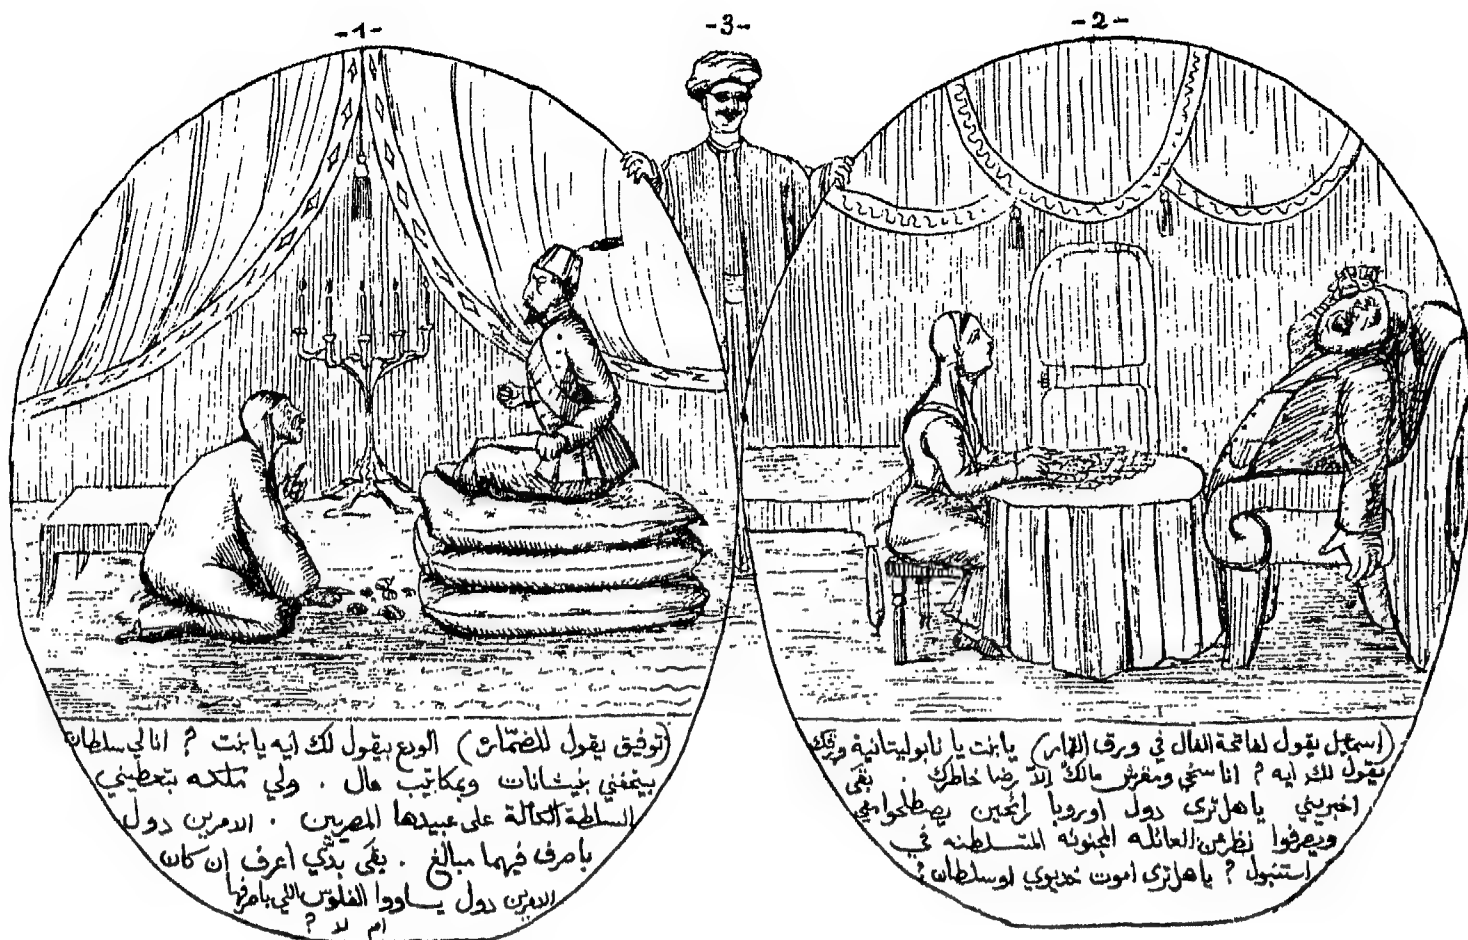 -1-
(توفيق يقول للضمّاره) الودع بيقول لك ايه يا بنت ? انا لي سلطان
بيتحفني بنيشانات وبمكاتيب مال . ولي ملكه بتعطيني
السلطة الكاملة على عبيدها المصريين . الامرين دول
باصرف فيهما مبالغ . بقى بدّي اعرف ان كان
الامرين دول يساووا الفلوس اللي باصرفها
ام لا ?
-3-
-2-
(اسماعيل يقول لفاتحة الفال في ورق القمار) يا بنت يا نابوليتانية ورقك
يقول لك ايه ? انا سخي ومغرش مالك الا رضا خاطرك . بقى
اخبريني يا هل ترى دول اوروبا رائحين يصطلحوا معي
ويصرفوا نظر عن العائله المجنونه المتسلطنه في
استنبول ? يا هل ترى اموت خديوي او سلطان ?